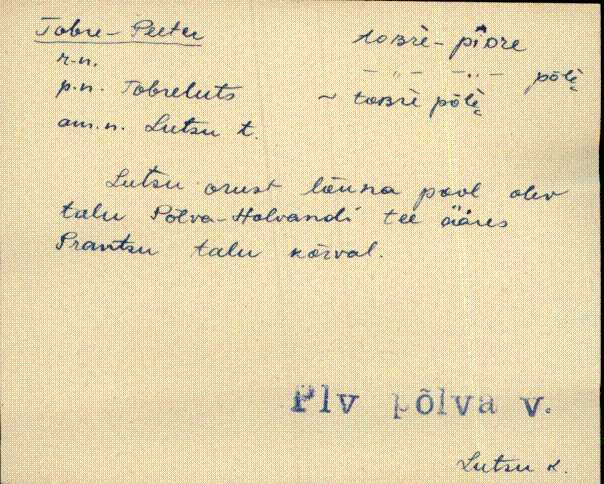 Tobre-Peeter toʙrè-pìDre
r.n. —„— —„— põlè̬
p.n. Tobreluts ~ toʙrè põlè̬
am.n. Lutsu t.
Lutsu orust lõuna pool olev
talu Põlva-Holvandi tee ääres
Prantsu talu kõrval.
Plv põlva v.
Lutsu k.